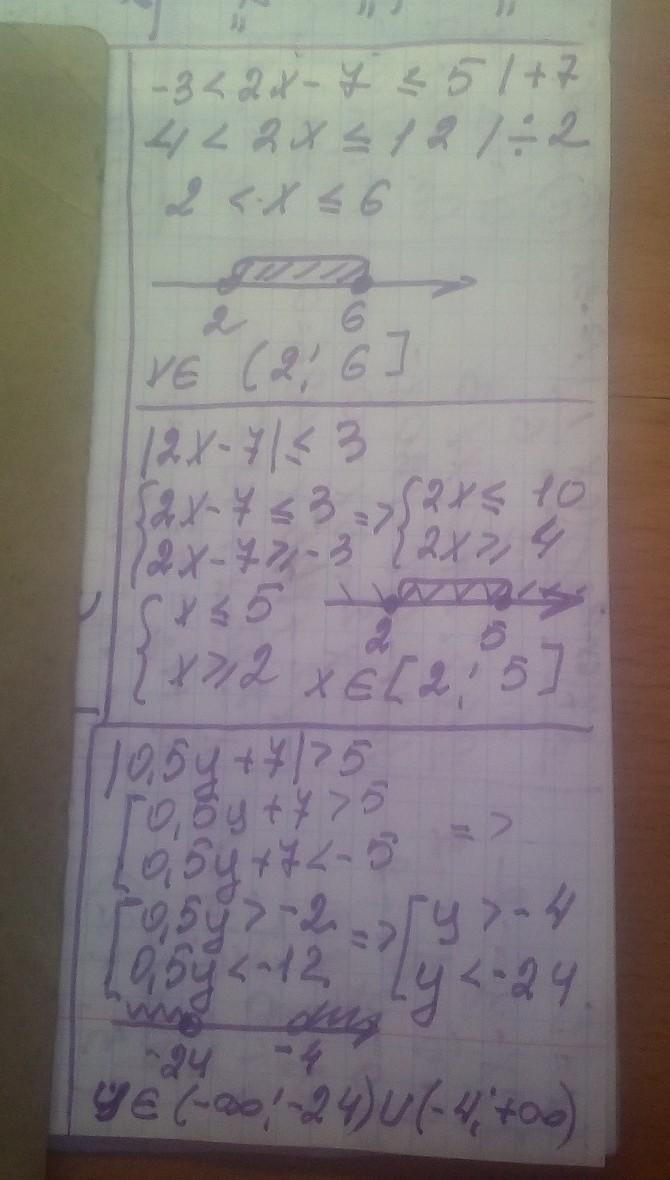 -3 < 2x - 7 ≤ 5 | +7
4 < 2x ≤ 12 | ÷ 2
2 < x ≤ 6
2 6
x ∈ (2; 6]
|2x - 7| ≤ 3
{2x - 7 ≤ 3 => {2x ≤ 10
{2x - 7 ≥ -3 {2x ≥ 4
{x ≤ 5
2 5
{x ≥ 2 x ∈ [2; 5]
|0,5y + 7| > 5
[0,5y + 7 > 5 =>
[0,5y + 7 < -5
[0,5y > -2 => [y > -4
[0,5y < -12 [y < -24
-24 -4
y ∈ (-∞; -24) ∪ (-4; +∞)